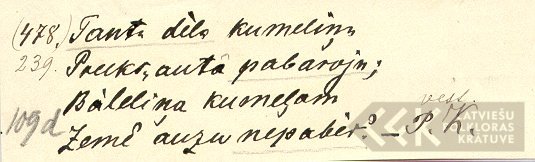 (478.) Tautu dēla kumeliņu
239. Priekšautā pabaroju;
Bāleliņa kumeļam
109d Zemē auzu nepabēr. – P. K.
LATVIEŠU
FOLKLORAS
KRĀTUVE